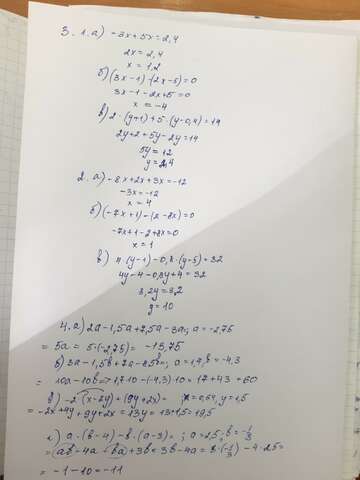 3. 1. а) -3x+5x=2,4
2x=2,4
x=1,2
б) (3x-1)-(2x-5)=0
3x-1-2x+5=0
x=-4
в) 2·(y+1)+5·(y-0,4)=14
2y+2+5y-2y=14
5y=12
y=2,4
2. а) -8x+2x+3x=-12
-3x=-12
x=4
б) (-7x+1)-(2-8x)=0
-7x+1-2+8x=0
x=1
в) 4·(y-1)-0,8·(y-5)=32
4y-4-0,8y+4=32
3,2y=3,2
y=10
4. а) 2a-1,5a+7,5a-3a; a=-2,75
=5a=5·(-2,75)=-13,75
б) 3a-1,5b+7a-8,5b=; a=1,7, b=-4,3
=10a-10b=1,7·10-(-4,3)·10=17+43=60
в) -2(x-2y)+(9y+2x)= x=0,64, y=1,5
=-2x+4y+9y+2x=13y=13·1,5=19,5
г) a·(b-4)-b·(a-3)=; a=2,5, b=-1/3
=ab-4a-ba+3b=3b-4a=3·(-1/3)-4·2,5=
=-1-10=-11